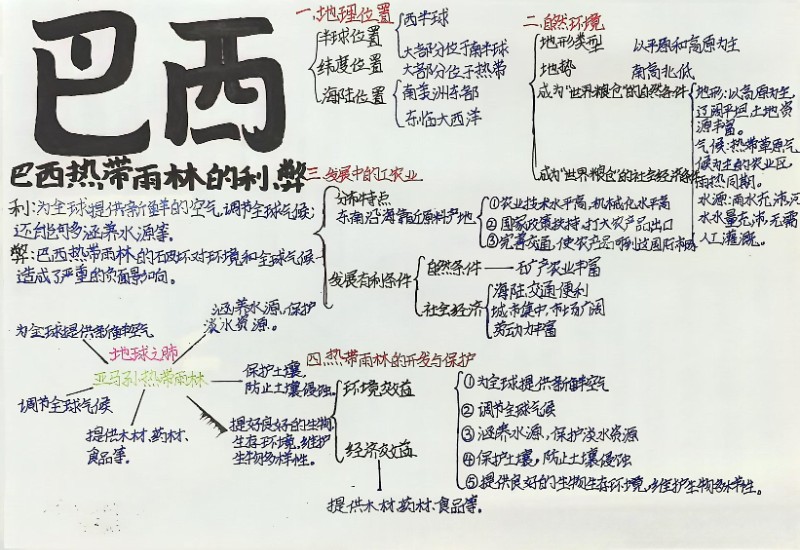 巴西
巴西热带雨林的利弊
利:为全球提供新鲜的空气,调节全球气候;
还能够涵养水源等。
弊:巴西热带雨林的破坏对环境和全球气候
造成了严重的负面影响。
一.地理位置
半球位置
西半球
大部分位于南半球
纬度位置
大部分位于热带
海陆位置
南美洲东部
东临大西洋
二.自然环境
地形类型 以平原和高原为主
地势 南高北低
成为"世界粮仓"的自然条件
地形:以高原为主,
辽阔平坦土地资
源丰富。
气候:热带草原气
候为主的农业区,
雨热同期。
水源:雨水充沛河
水水量充沛,无需
人工灌溉。
成为"世界粮仓"的社会经济条件
①农业技术水平高,机械化水平高
②国家政策扶持,扩大农产品出口
③完善交通,使农产品
三 发展中的工农业
分布特点
东南沿海靠近原料产地
发展有利条件
自然条件——矿产农业丰富
社会经济
海陆交通便利
城市集中,市场广阔
劳动力丰富
为全球提供新鲜空气
涵养水源,保护
淡水资源。
地球之肺
亚马孙热带雨林
保护土壤,
防止土壤侵蚀。
调节全球气候
提供木材,药材,
食品等。
提好良好的生物
生存环境,维护
生物多样性。
四.热带雨林的开发与保护
环境效益
①为全球提供新鲜空气
②调节全球气候
③涵养水源,保护淡水资源
④保护土壤,防止土壤侵蚀
⑤提供良好的生物生存环境,维护生物多样性。
经济效益
提供木材,药材,食品等。